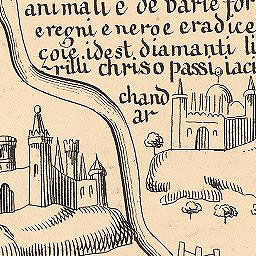 animali e de varie for
eregni e nerg e eradice
çoie idest diamanti li
rilli chrisopassi iaci
chand
ar